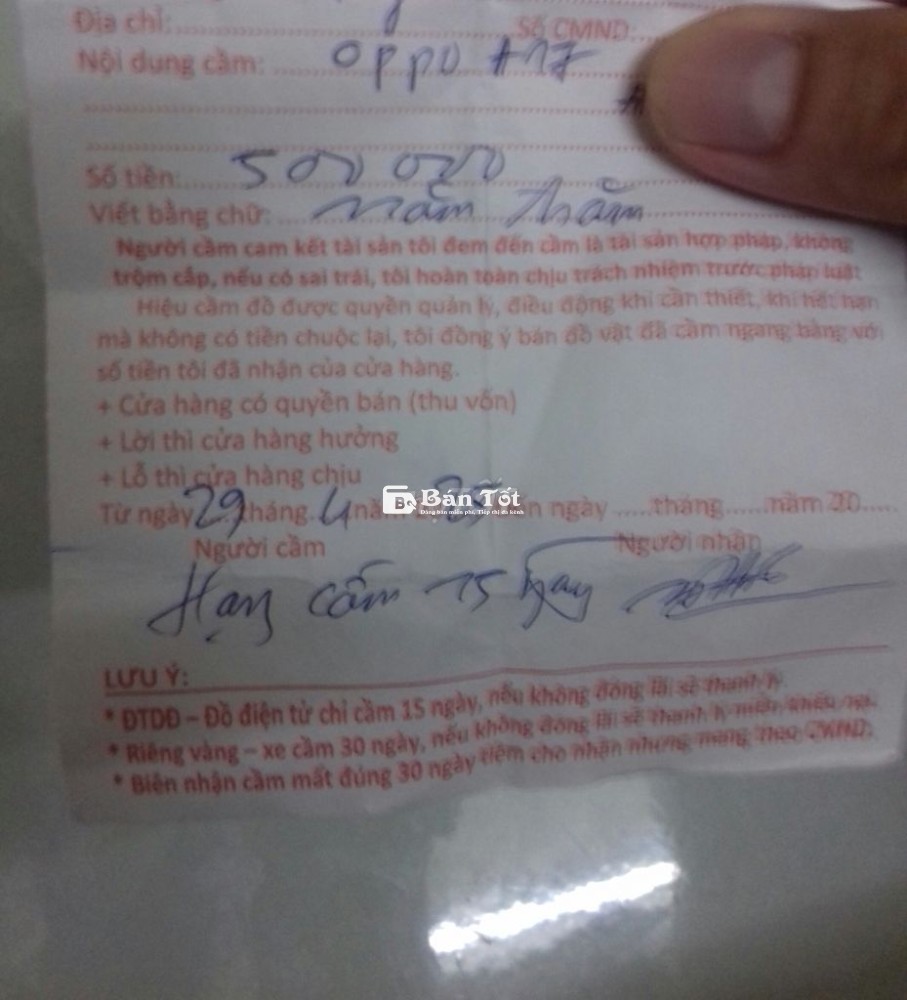 Địa chỉ: Số CMND:
Nội dung cầm: OPPO A17
Số tiền: 500 000
Viết bằng chữ: năm trăm
Người cầm cam kết tài sản tôi đem đến cầm là tài sản hợp pháp, không
trộm cắp, nếu có sai trái, tôi hoàn toàn chịu trách nhiệm trước pháp luật
Hiệu cầm đồ được quyền quản lý, điều động khi cần thiết, khi hết hạn
mà không có tiền chuộc lại, tôi đồng ý bán đồ vật đã cầm ngang bằng với
số tiền tôi đã nhận của cửa hàng.
+ Cửa hàng có quyền bán (thu vốn)
+ Lời thì cửa hàng hưởng
+ Lỗ thì cửa hàng chịu
Bán Tốt
Đăng bán miễn phí, Tiếp thị đa kênh
Từ ngày 29 tháng 4 năm 25 ngày ......tháng......năm 20.....
Người cầm Người nhận
Hạn cầm 15 ngày
LƯU Ý:
* ĐTDĐ – Đồ điện tử chỉ cầm 15 ngày, nếu không đóng lãi sẽ thanh lý
* Riêng vàng – xe cầm 30 ngày, nếu không đóng lãi sẽ thanh lý miễn khiếu nại.
* Biên nhận cầm mất đúng 30 ngày tiệm cho nhận nhưng mang theo CMND.